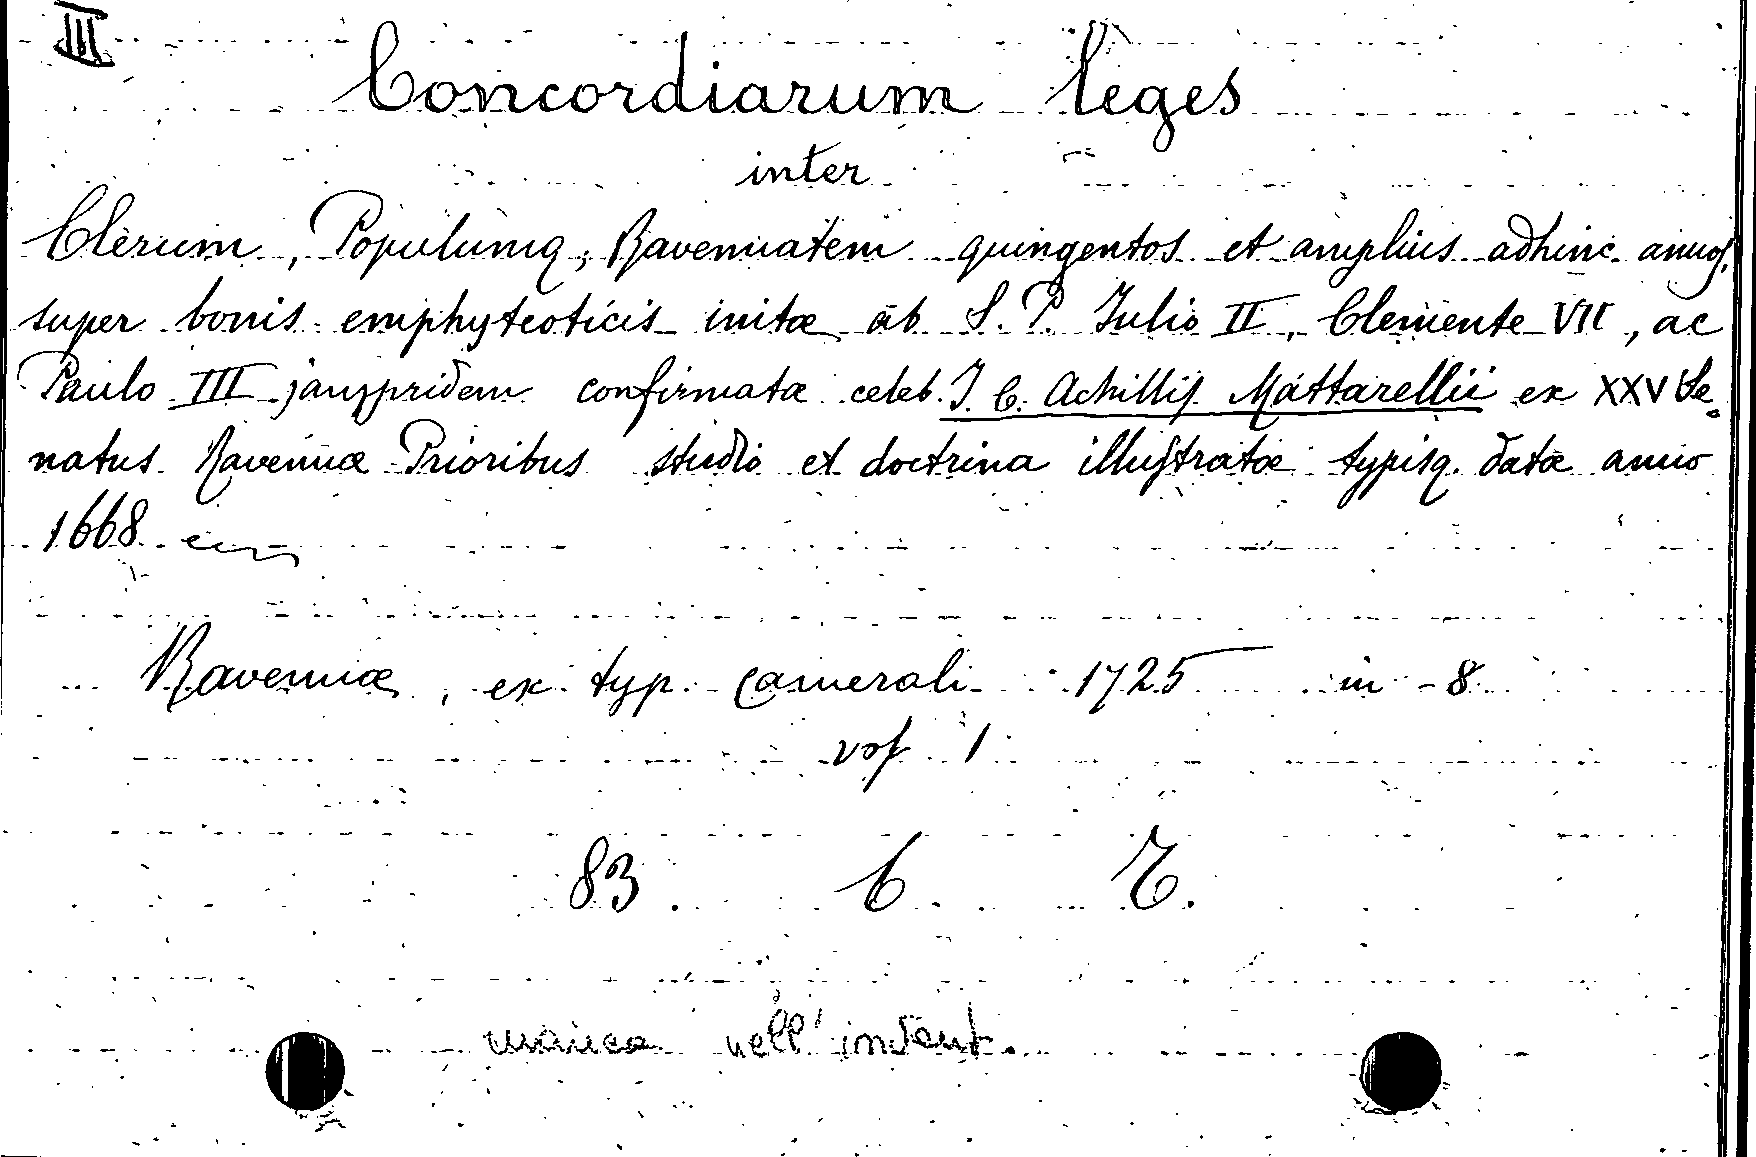 III
Concordiarum leges
inter
Clerum, Populumq; Ravennatem quingentos et amplius adhinc annos,
super bonis emphyteoticis initæ ab S. P. Julio II, Clemente VII, ac
Paulo III jampridem confirmatæ celeb. J. C. Achillis Mattarellii ex XXV Se=
natus Ravennæ Prioribus studio et doctrina illustratæ typisq. datæ anno
1668
Ravennæ, ex typ. Camerali 1725 in-8
vol 1
83. 6. C.
manca nell'invent.